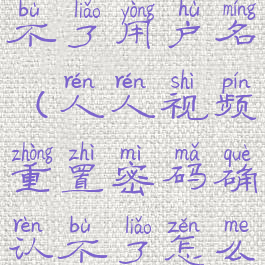 bù liǎo yòng hù míng
不了用户名
rén rén shì pín
（人人视频
zhòng zhì mì mǎ què
重置密码确
rèn bù liǎo zěn me
认不了怎么